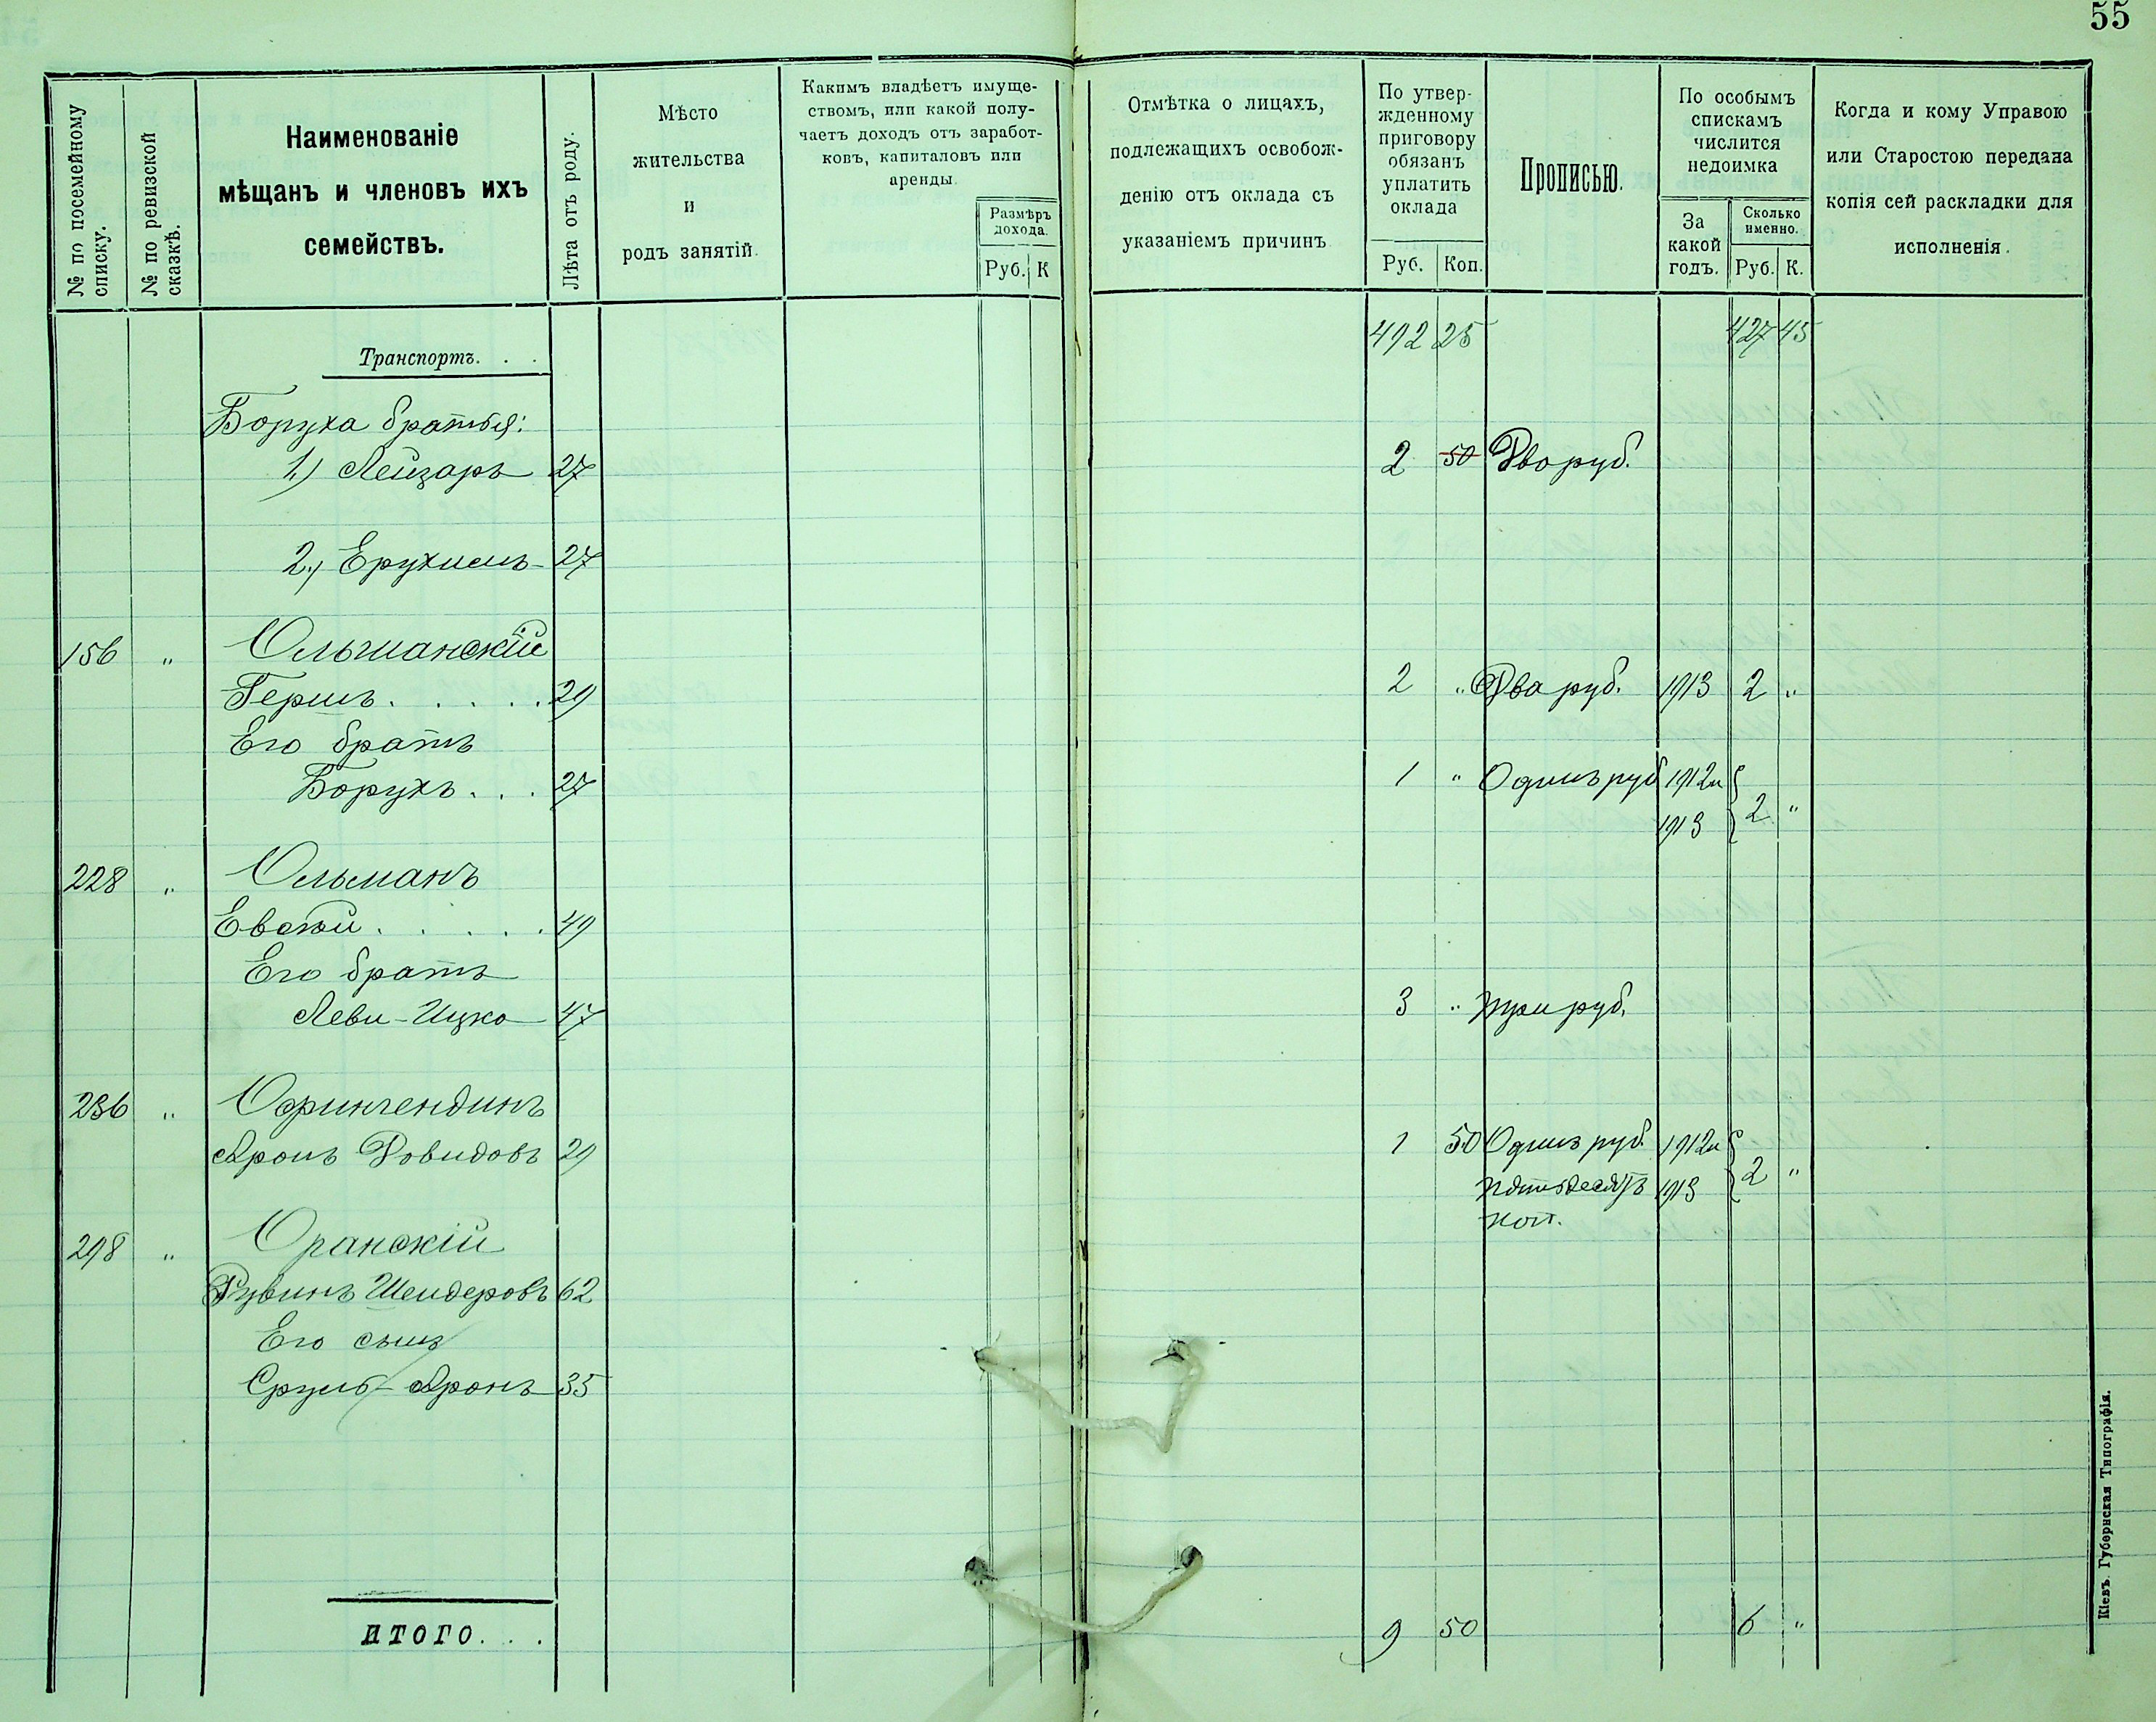 55
№ по посемейному списку.
№ по ревизской сказкѣ.
Наименованіе
мѣщанъ и членовъ ихъ
семействъ.
Лѣта отъ роду.
Мѣсто
жительства
и
родъ занятій.
Какимъ владѣетъ имуще-
ствомъ, или какой полу-
чаетъ доходъ отъ заработ-
ковъ, капиталовъ или
аренды.
Размѣръ
дохода.
Руб. К
Отмѣтка о лицахъ,
подлежащихъ освобож-
денію отъ оклада съ
указаніемъ причинъ
По утвер-
жденному
приговору
обязанъ
уплатить
оклада
Руб. Коп.
Прописью.
По особымъ
спискамъ
числится
недоимка
За
какой
годъ.
Сколько
именно.
Руб. К.
Когда и кому Управою
или Старостою передана
копія сей раскладки для
исполненія.
Транспортъ. . . 492 25 427 45
Боруха братья:
1) Лейзоръ 27 2 50 Два руб.
2) Ерухимъ 27
156 " Ольшанскій
Гершъ. . . . . 29 2 " Два руб. 1913 2 "
Его братъ
Борухъ. . . 27 1 " Одинъ руб 1912 и
1913 2 "
228 " Ольманъ
Евсѣй . . . . . 49
Его братъ
Леви-Ицко 47 3 " Три руб.
236 " Офингендинъ
Аронъ Довидовъ 29 1 50 Одинъ руб. 1912 и
пятьдесятъ 1913 2 "
коп.
298 " Оранскій
Рувинъ Шендеровъ 62
Его сынъ
Сруль-Аронъ 35
ИТОГО. . . 9 50 6 "
Кіевъ. Губернская Типографія.